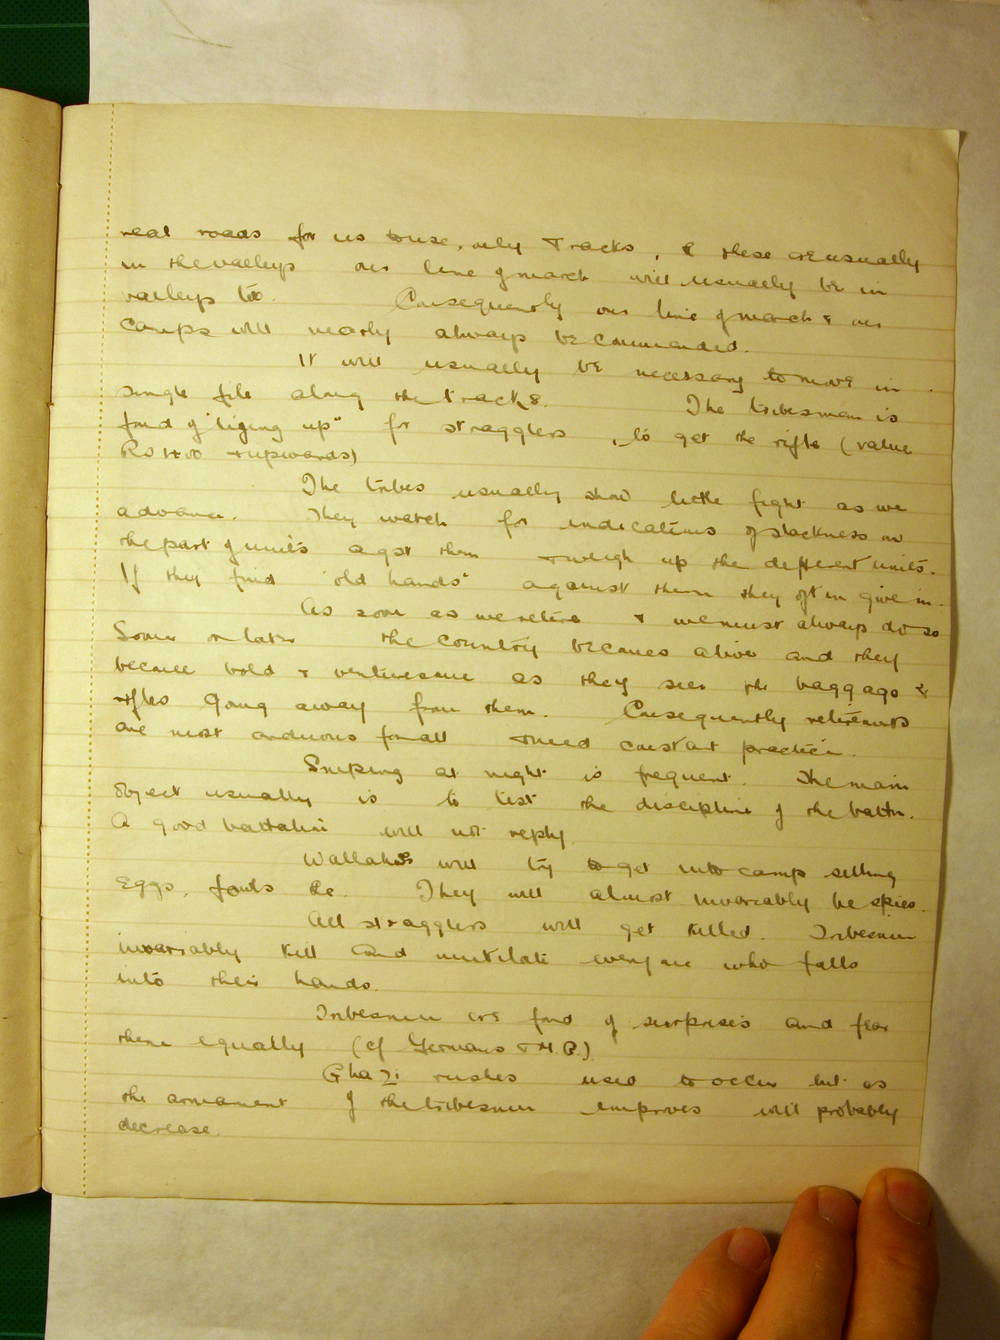 real roads for us to use, only Tracks, & these are usually
in the valleys our line of march will usually be in
valleys too. Consequently our line of march & our
camps will nearly always be commanded.
It will usually be necessary to move in
single file along the tracks. The tribesman is
fond of "lying up" for stragglers, to get the rifle (value
Rs + upwards)
The tribes usually show little fight as we
advance. They watch for indications of slackness on
the part of units agst them + weigh up the different units.
If they find "old hands" against them they often give in.
As soon as we retire & we must always do so
Sooner or later the country becomes alive and they
become bold + venturesome as they see the baggage &
rifles going away from them. Consequently retirements
are most arduous for all + need constant practice.
Sniping at night is frequent. The main
object usually is to test the discipline of the battn.
A good battalion will not reply.
Wallahs will try to get into camp selling
Eggs, fowls &c. They will almost invariably be spies.
All stragglers will get killed. Tribesmen
invariably kill and mutilate everyone who falls
into their hands.
Tribesmen are fond of surprises and fear
them equally (cf Germans +
Ghazi rushes used to occur but as
the armament of the tribesmen improves will probably
decrease.